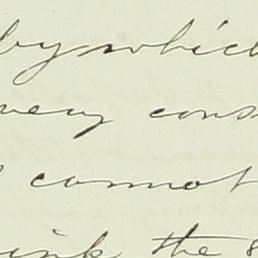 by which
very cons
cannot
ink the s